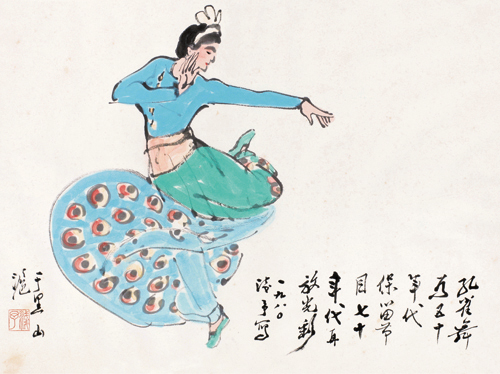 孔雀舞
为五十
年代
保留节
目七十
年代再
放光彩
一九八〇
浅予写
于 山